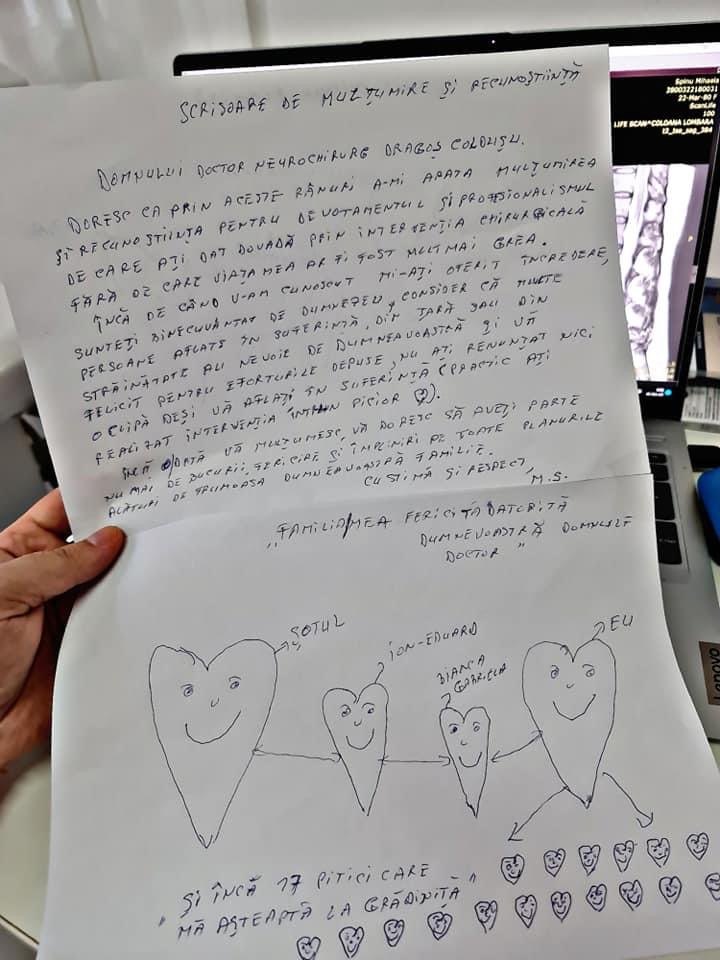 SCRISOARE DE MULȚUMIRE ȘI RECUNOȘTIINȚĂ
DOMNULUI DOCTOR NEUROCHIRURG DRAGOȘ COLDUȘU.
DORESC CA PRIN ACESTE RÂNURI A-MI ARATA MULȚUMIREA
ȘI RECUNOȘTIINȚA PENTRU DEVOTAMENTUL ȘI PROFESIONALISMUL
DE CARE AȚI DAT DOVADĂ PRIN INTERVENȚIA CHIRURGICALĂ
FĂRĂ DE CARE VIAȚA MEA AR FI FOST MULT MAI GREA.
ÎNCĂ DE CÂND V-AM CUNOSCUT MI-AȚI OFERIT ÎNCREDERE,
SUNTEȚI BINECUVÂNTAT DE DUMNEZEU, CONSIDER CĂ MULTE
PERSOANE AFLATE ÎN SUFERINȚĂ, DIN ȚARĂ SAU DIN
STRĂINĂTATE AU NEVOIE DE DUMNEAVOASTRĂ ȘI VĂ
FELICIT PENTRU EFORTURILE DEPUSE, NU AȚI RENUNȚAT NICI
O CLIPĂ DEȘI VĂ AFLAȚI ÎN SUFERINȚĂ (PRACTIC AȚI
REALIZAT INTERVENȚIA ÎNTR-UN PICIOR).
ÎNCĂ ODATĂ VĂ MULȚUMESC, VĂ DORESC SĂ AVEȚI PARTE
NUMAI DE BUCURII, FERICIRE ȘI ÎMPLINIRI PE TOATE PLANURILE
ALĂTURI DE FRUMOASA DUMNEAVOASTRĂ FAMILIE.
CU STIMĂ ȘI RESPECT,
M.S.
"FAMILIA MEA FERICITĂ DATORITĂ
DUMNEVOASTRĂ DOMNULE
DOCTOR"
SOȚUL
ION-EDUARD
BIANCA
GABRIELA
EU
"ȘI ÎNCĂ 17 PITICI CARE
MĂ AȘTEAPTĂ LA GRĂDINIȚĂ"
Spinu Mihaela
2800322180031
22-Mar-80 F
ScanLife
100
LIFE SCAN^COLOANA LOMBARA
t2_tse_sag_384